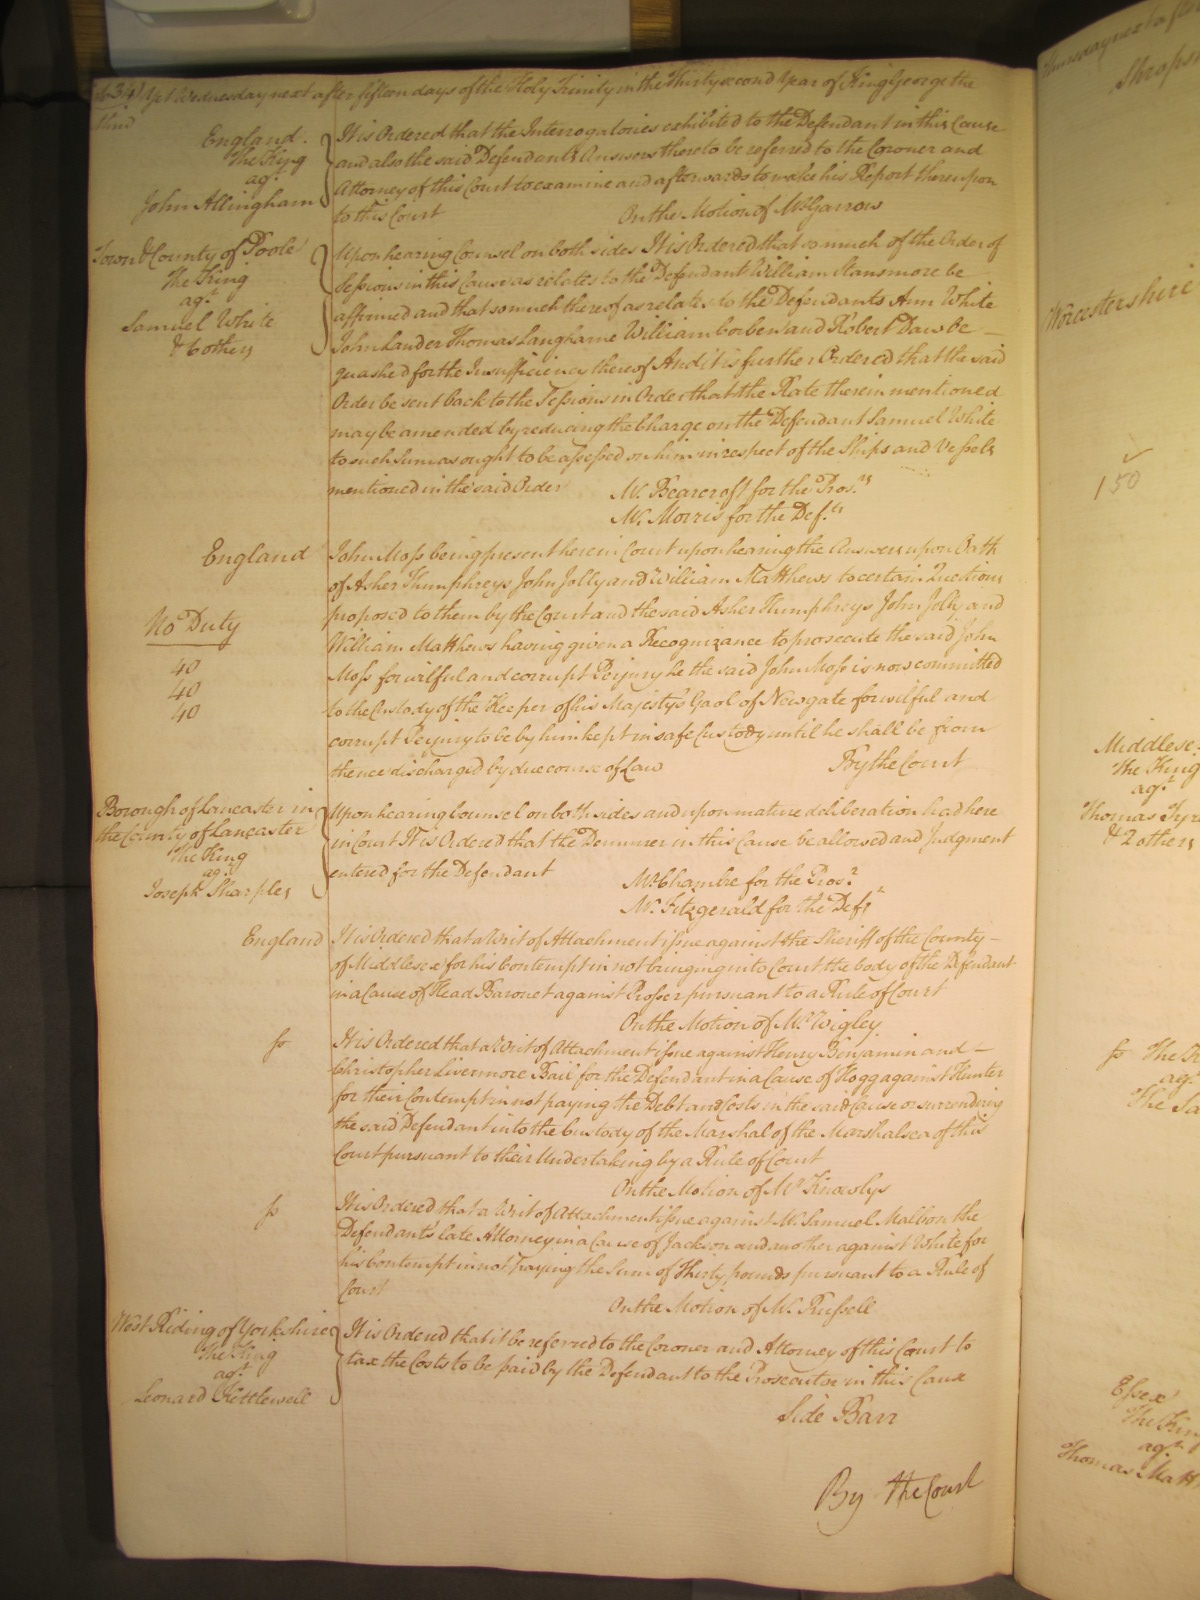 Yet Wednesday next after fifteen days of the Holy Trinity in the Thirty second Year of King George the
third
England.
The King
agt
John Allingham
It is Ordered that the Interrogatories exhibited to the Defendant in this Cause
and also the said Defendants Answers thereto be referred to the Coroner and
Attorney of this Court to examine and afterwards to make his Report thereupon
to this Court
On the Motion of Mr Garrow
Town & County of Poole
The King
agt
Samuel White
& 6 others
Upon hearing Counsel on both sides It is Ordered that so much of the Order of
Sessions in this Cause as relates to the Defendant William Stansmore be
affirmed and that so much thereof as relates to the Defendants Ann White
John Lander Thomas Langharne William Corben and Robert Daw be
quashed for the Insufficiency thereof And it is further Ordered that the said
Order be sent back to the Sessions in Order that the Rate therein mentioned
may be amended by reducing the Charge on the Defendant Samuel White
to such Sum as ought to be assessed on him in respect of the Ships and Vessels
mentioned in the said Order
Mr. Bearcroft for the Prosrs
Mr. Morris for the Defts
England
No Duty
40
40
40
John Moss being present here in Court upon hearing the Answers upon Oath
of Asher Humphreys John Jolly and William Matthews to certain Questions
proposed to them by the Court and the said Asher Humphreys John Jolly and
William Matthews having given a Recognizance to prosecute the said John
Moss for wilful and corrupt Perjury he the said John Moss is now committed
to the Custody of the Keeper of his Majesty's Gaol of Newgate for wilful and
corrupt Perjury to be by him kept in safe Custody until he shall be from
thence discharged by due course of Law
By the Court
Borough of Lancaster in
the County of Lancaster
The King
agt
Joseph Sharples
Upon hearing Counsel on both sides and upon mature deliberation had here
in Court It is Ordered that the Demurrer in this Cause be allowed and Judgment
entered for the Defendant
Mr Chambre for the Prosr
Mr. Fitzgerald for the Deft
England
It is Ordered that a Writ of Attachment issue against the Sheriff of the County
of Middlesex for his Contempt in not bringing into Court the body of the Defendant
in a Cause of Head Baronet against Prosser pursuant to a Rule of Court
On the Motion of Mr Wigley
ss
It is Ordered that a Writ of Attachment issue against Henry Benjamin and
Christopher Livermore Bail for the Defendant in a Cause of Hogg against Hunter
for their Contempt in not paying the Debt and Costs in the said Cause or surrendering
the said Defendant into the Custody of the Marshal of the Marshalsea of this
Court pursuant to their Undertaking by a Rule of Court
On the Motion of Mr Knowlys
ss
It is Ordered that a Writ of Attachment issue against Mr. Samuel Malbon the
Defendant's late Attorney in a Cause of Jackson and another against White for
his Contempt in not Paying the Sum of Thirty pounds pursuant to a Rule of
Court
On the Motion of Mr. Russell
West Riding of Yorkshire
The King
agt
Leonard Kettlewell
It is Ordered that it be referred to the Coroner and Attorney of this Court to
tax the Costs to be paid by the Defendant to the Prosecutor in this Cause
Side Barr
By the Court
Worcestershire
150
The King
agt
Thomas
& 2 others
ss The
agt
The
Essex
The King
agt
Thomas